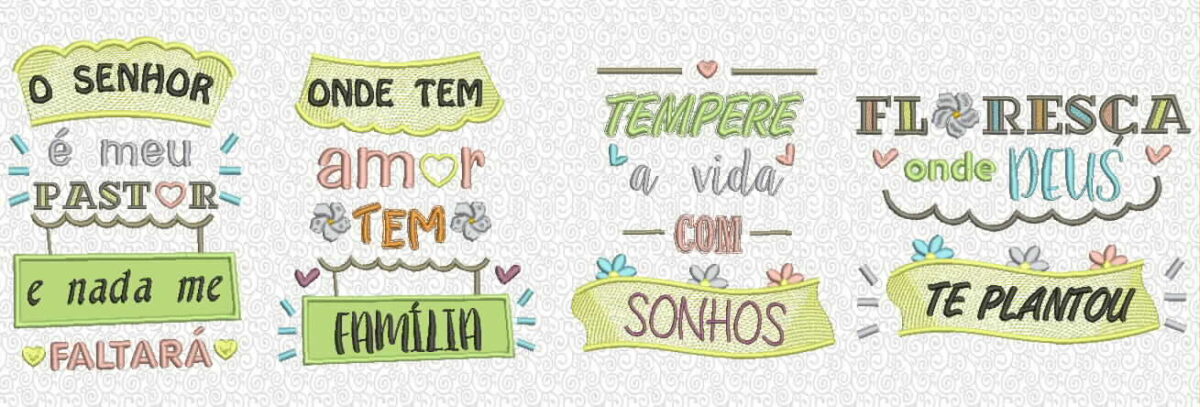 O SENHOR
é meu
PASTOR
e nada me
FALTARÁ
ONDE TEM
amor
TEM
FAMÍLIA
TEMPERE
a vida
COM
SONHOS
FLORESÇA
onde DEUS
TE PLANTOU